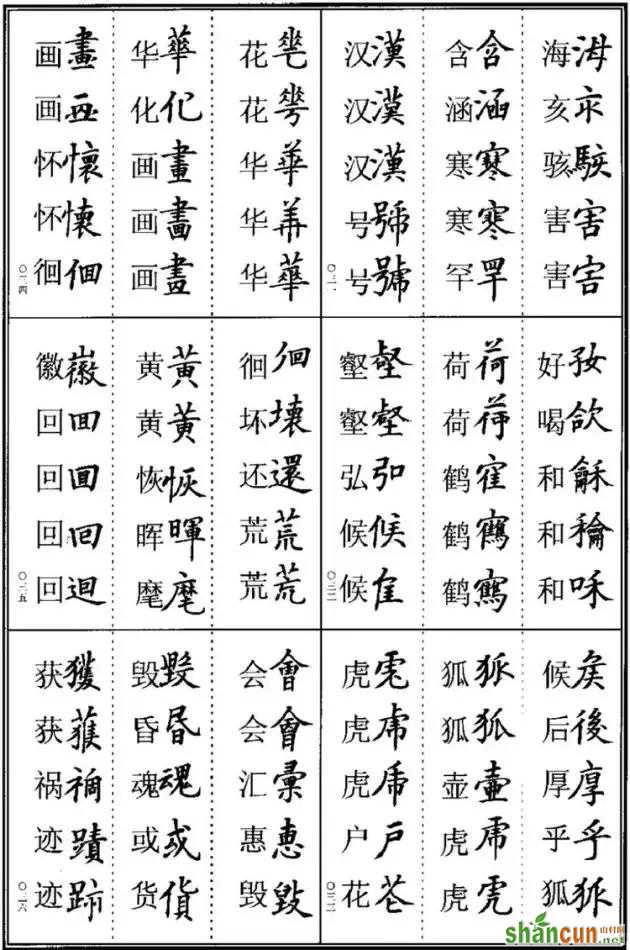 海海亥亥骇駭害害害害
含含涵涵寒寒寒寒罕罕
汉漢汉漢汉漢号號号號
〇二一
好喝欱和龢和和咊
荷荷荷荷鹤寉鹤鶴鹤鶴
壑壑壑壑弘弘候候候
〇二二
候矦后後厚厚乎乎狐狐
狐狐狐狐壶壺虎虎虎虎
虎虎虎虎虎虎户户花芲
〇二三
花花华華华华華
华華化化画畫画畫画畫
画畫画怀懷怀懷徊徊
〇二四
徊徊坏壞还還荒荒荒荒
黄黄黄黄恢恢晖暉麾麾
徽徽回囬回囬回回回迴
〇二五
会會会會汇彙惠惠毁毀
毁毀昏昬魂魂或或货貨
获獲获獲祸禍迹蹟迹跡
〇二六
shancun 山村网
.net